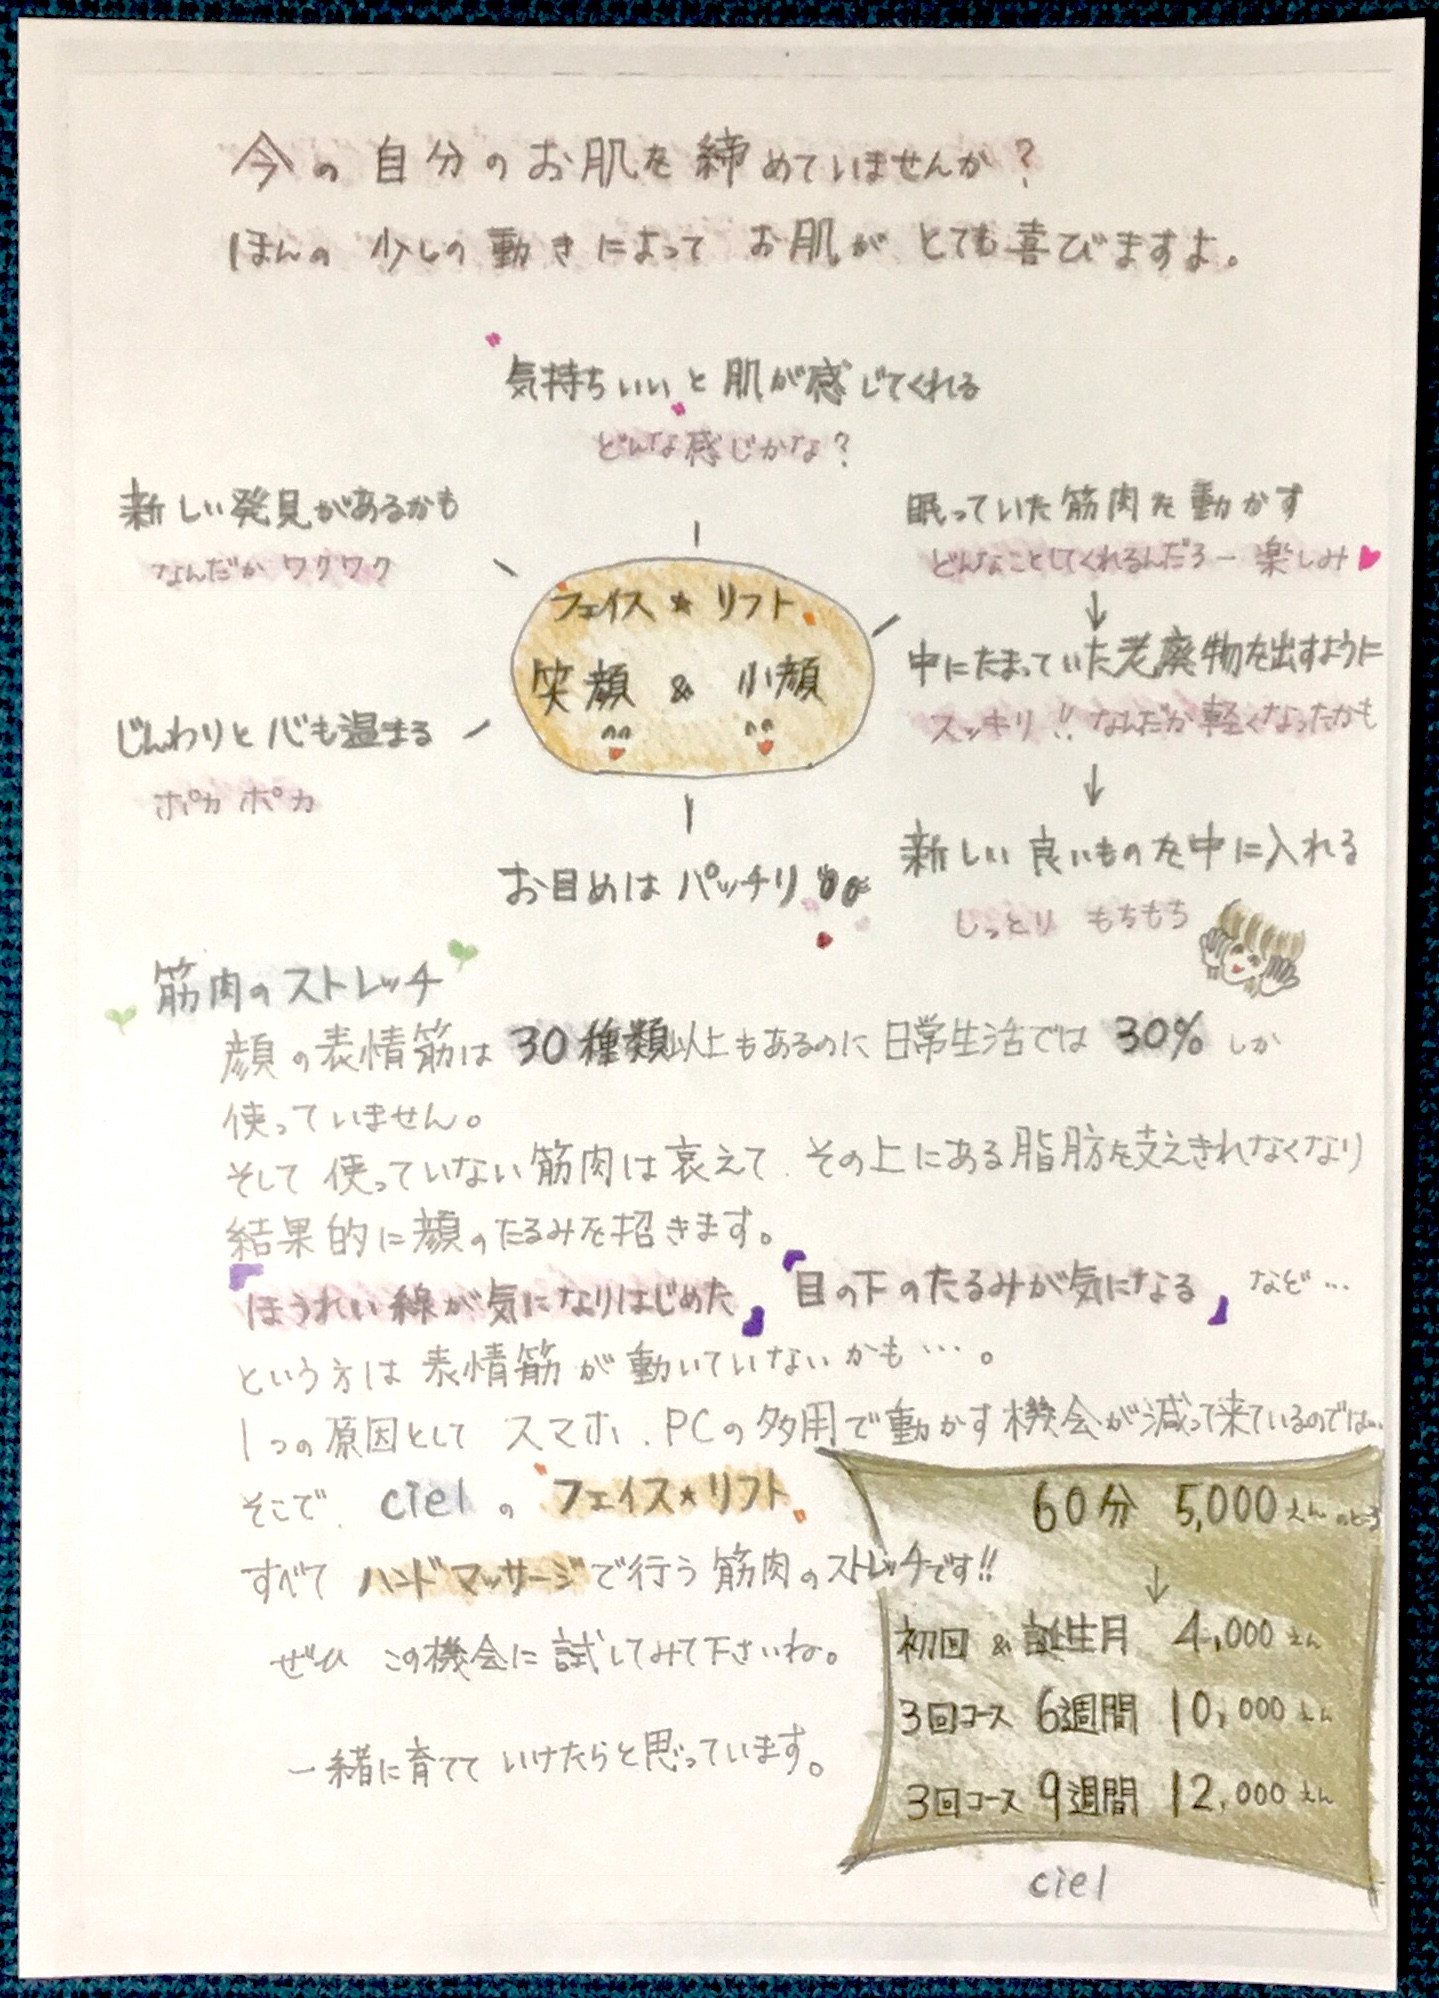 今の自分のお肌を締めていませんか？
ほんの少しの動きによってお肌がとても喜びますよ。
気持ちいいと肌が感じてくれる
どんな感じかな？
新しい発見があるかも
なんだかワクワク
じんわりと心も温まる
ポカポカ
フェイス★リフト
笑顔 & 小顔
お目めはパッチリ
眠っていた筋肉を動かす
どんなことしてくれるんだろー楽しみ♥
↓
中にたまっていた老廃物を出すように
スッキリ!!なんだか軽くなったかも
↓
新しい良いものを中に入れる
しっとり もちもち
筋肉のストレッチ
顔の表情筋は30種類以上もあるのに日常生活では30%しか
使っていません。
そして使っていない筋肉は衰えて、その上にある脂肪を支えきれなくなり
結果的に顔のたるみを招きます。
「ほうれい線が気になりはじめた」「目の下のたるみが気になる」なぞ…
という方は表情筋が動いていないかも…。
1つの原因としてスマホ、PCの多用で動かす機会が減って来ているのでは…
そこで、cielの"フェイス★リフト"
すべてハンドマッサージで行う筋肉のストレッチです!!
ぜひこの機会に試してみて下さいね。
一緒に育てていけたらと思っています。
60分 5,000えんのところ
↓
初回&誕生月 4,000えん
3回コース 6週間 10,000えん
3回コース 9週間 12,000えん
ciel